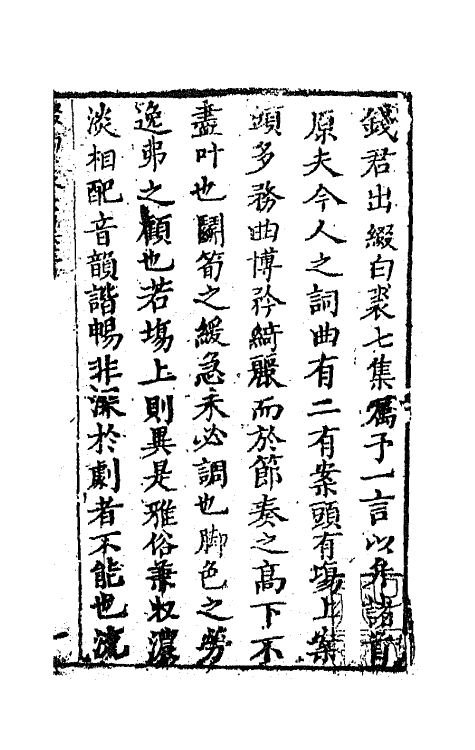 錢君出綴白裘七集屬予一言以弁諸首
原夫今人之詞曲有二有案頭有塲上案
頭多務曲博矜綺麗而於節奏之高下不
盡叶也鬭筍之緩急未必調也脚色之勞
逸弗之顧也若塲上則異是雅俗兼収濃
淡相配音韻諧暢非深於劇者不能也流